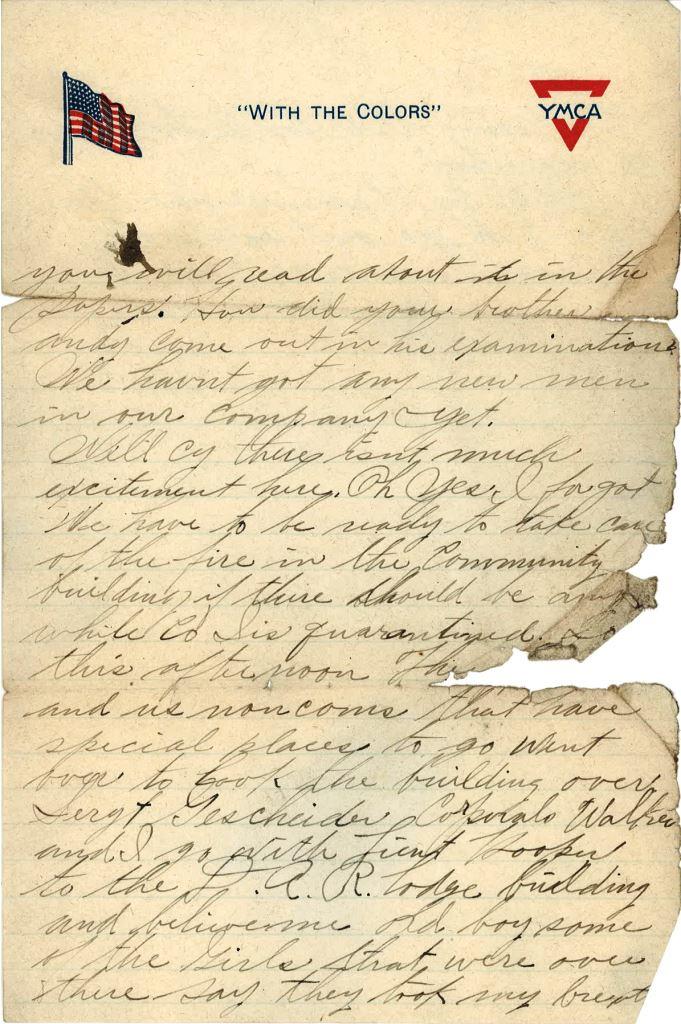 "WITH THE COLORS"
YMCA
you will read about it in the
papers. How did your brother
andy come out in his examination.
We havnt got any new men
in our company yet.
Well Cy there isnt much
excitement here. Oh Yes I forgot
We have to be ready to take care
of the fire in the Community
building if there should be any
while Co I is quarantined. So
this afternoon the
and us noncoms that have
special places to go went
over to look the building over,
Sergt Corporals
and I go with Lieut Hooper
to the D. A. R. lodge building
and believe me old boy some
of the Girls that were over
there say they took my breat